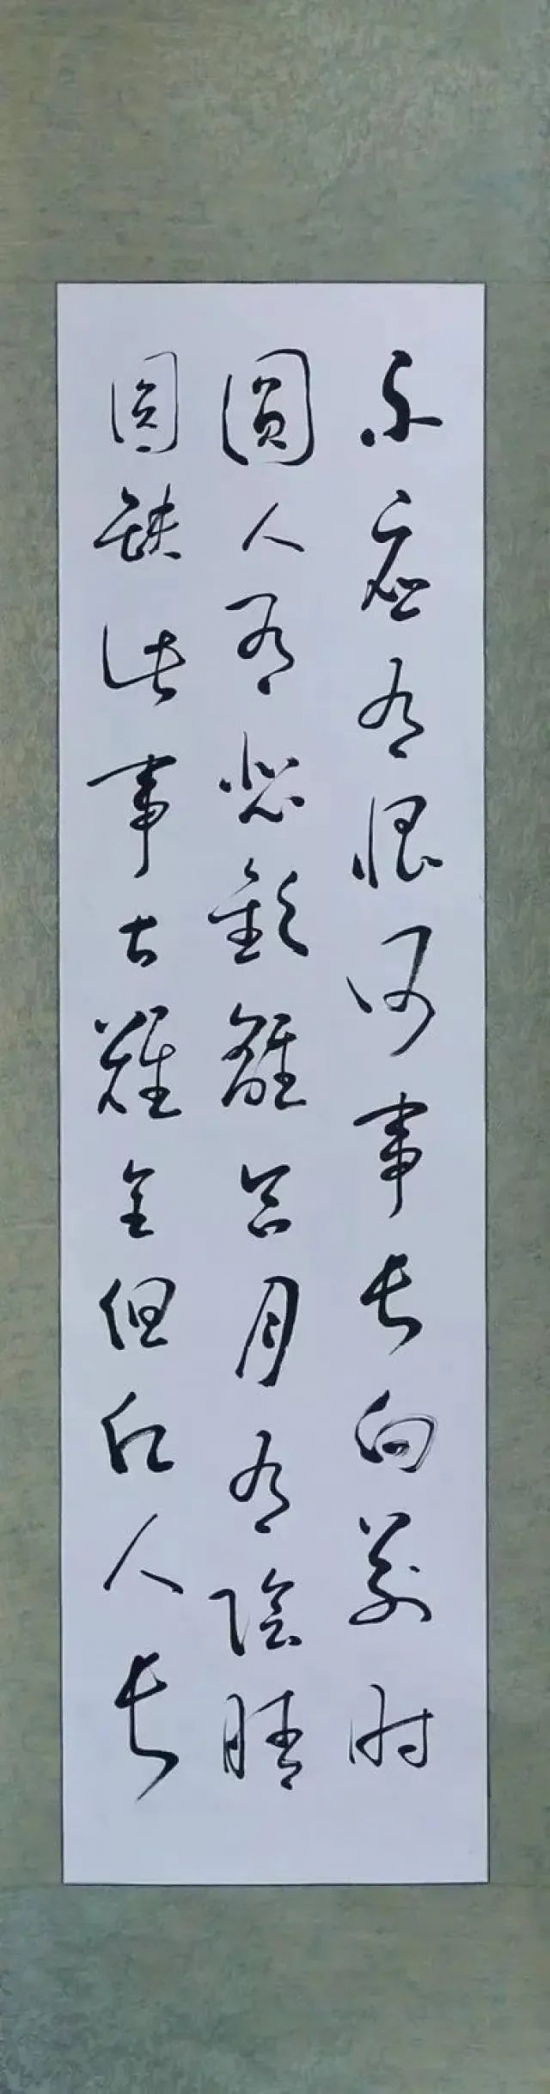 不應有恨何事長向別時
圓人有悲歡離合月有陰晴
圓缺此事古難全但願人長